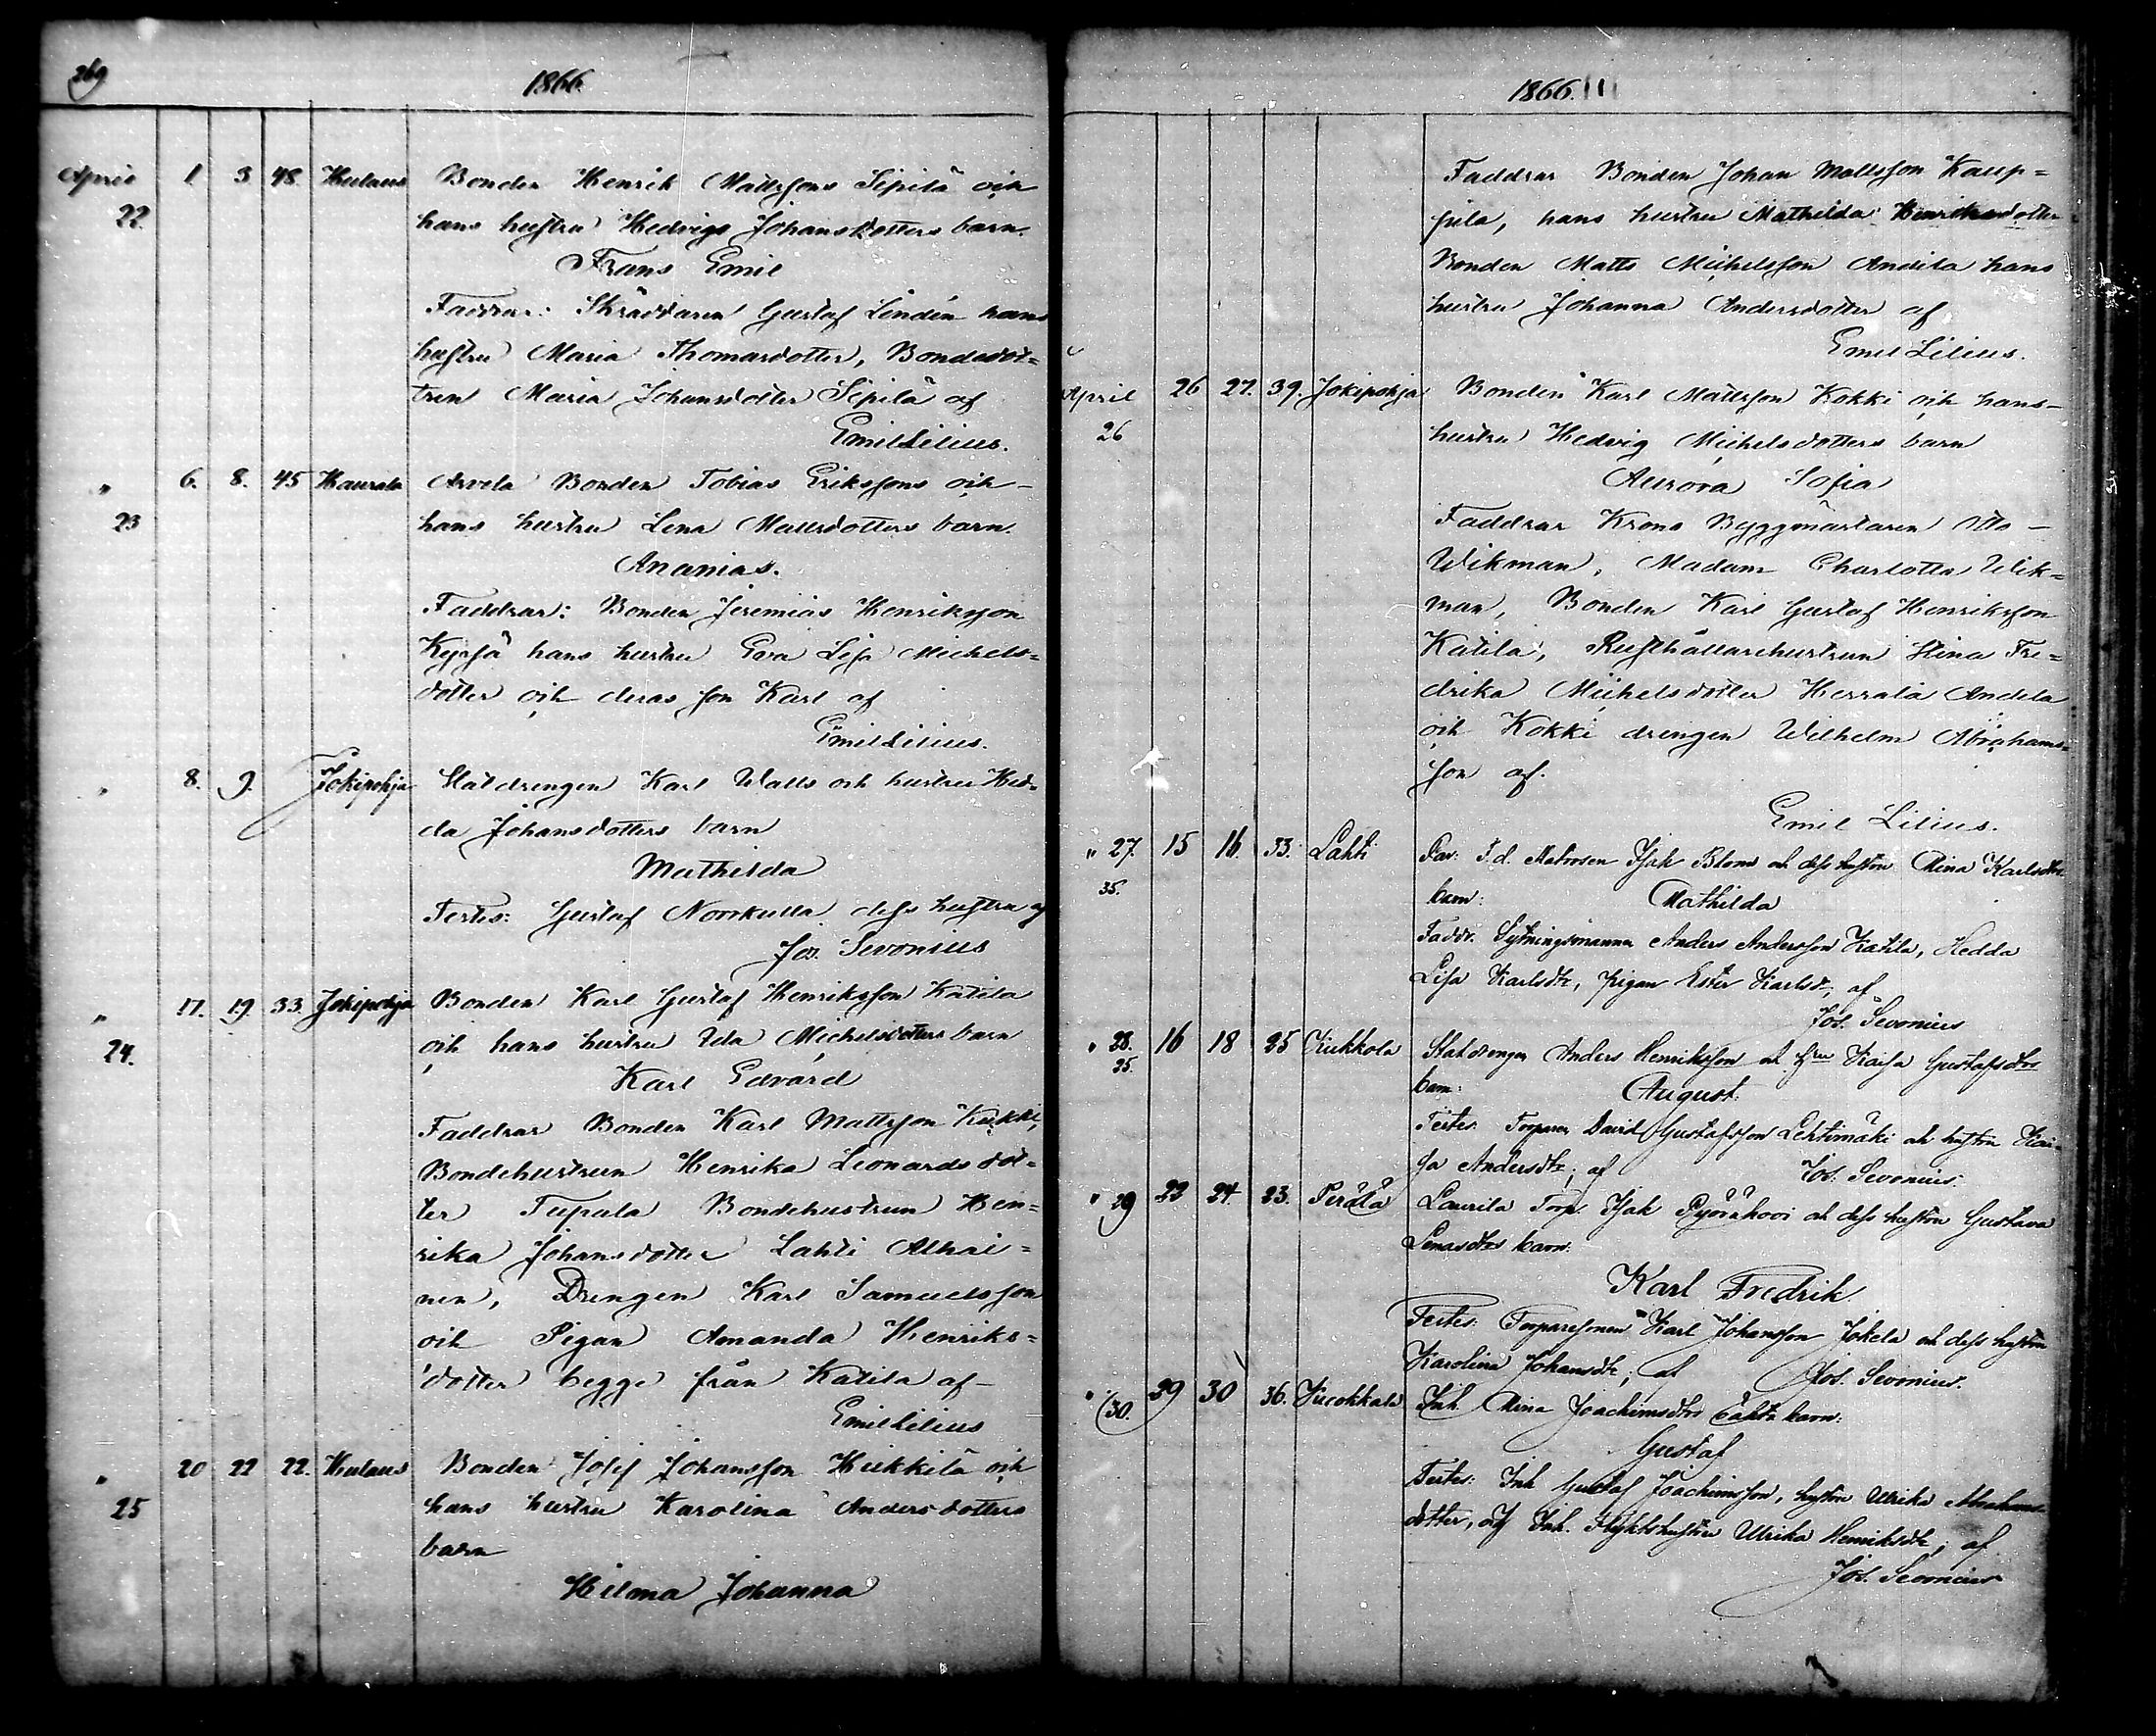 269
1866.
April 22. 1 3 48 Hulaus Bonden Henrik Mattssons Sipilä och
hans hustru Hedvigs Johansdotters barn.
Frans Emil
Faddrar: Skräddaren Gustaf Lindén hans
hustru Maria Thomasdotter, Bondedot=
tren Maria Johansdotter Sipilä af
Emil Lilius.
" 23 6. 8. 45 Haurala Arvela Bonden Tobias Erikssons och
hans hustru Lena Mattsdotters barn.
Ananias.
Faddrar: Bonden Jeremias Henriksson
hans hustru Eva Lisa Michels=
dotter och deras son Karl af
Emil Lilius.
" 8. 9. Jokipohja Statdrengen Karl Walls och hustru Hed=
da Johansdotters barn
Mathilda
Testes: Gustaf Norrkulla dess hustru af
Jos. Sevonius
" 24. 17. 19. 33. Jokipohja Bonden Karl Gustaf Henriksson Katila
och hans hustru Ida Michelsdotters barn
Karl Edvard
Faddrar Bonden Karl Mattsson Kokki,
Bondehustrun Henrika Leonardsdot=
ter Tupala Bondehustrun Hen=
rika Johansdotter Lahti Alhai=
nen, Drengen Karl Samuelsson
och Pigan Amanda Henriks=
dotter begge från Katila af
Emil Lilius
" 25 20 22 22. Hulaus Bonden Josef Johansson Heikkilä och
hans hustru Karolina Andersdotters
barn
Hilma Johanna
1866.
Faddrar Bonden Johan Mattsson Kaup=
pila, hans hustru Mathilda Henriksdotter
Bonden Matts Michelsson Andila hans
hustru Johanna Andersdotter af
Emil Lilius.
April 26 26 27. 39. Jokipohja Bonden Karl Mattsson Kokki och hans
hustru Hedvig Michelsdotters barn
Aurora Sofia
Faddrar Krono Byggmästaren Otto
Wikman, Madam Charlotta Wik=
man, Bonden Karl Gustaf Henriksson
Katila, Rusthållarehustrun Stina Fre=
drika Michelsdotter Herrala Andela
och Kokki drengen Wilhelm Abrahams=
son af.
Emil Lilius.
" 27. 35. 15 16. 33. Lahti F.d. Matrosen Isak Blom och dess hustru Mina Karlsdtrs
barn: Mathilda
Faddr. Sytningsmannen Anders Andersson Katila, Hedda
Lisa Karlsdtr, pigan Ester Karlsd., af
Jos. Sevonius
" 28. 25. 16 18 25 Kukkola Statdrengen Anders Henriksson och hru Kaisa Gustafsdtrs
barn: August.
Testes: Torparen David Gustafsson Lehtimäki och hustru Kai=
sa Andersdtr; af Jos. Sevonius.
" 29 22 24. 23. Perälä Laurila Torp. Isak Pyöräkovi och dess hustru Gustava
barn:
Karl Fredrik.
Testes: Torparesonen Karl Johansson Jokela och dess hustru
Karolina Johansdtr; af Jos. Sevonius.
" 30. 29 30 36. Kuckkala Inh. Mina Joachimsdtrs oäkta barn:
Gustaf
Testes: Inh Gustaf Joachimsson, hustru Ulrika Abrahams
dotter, och Inh. Ulrika Henriksdtr; af
Jos. Sevonius